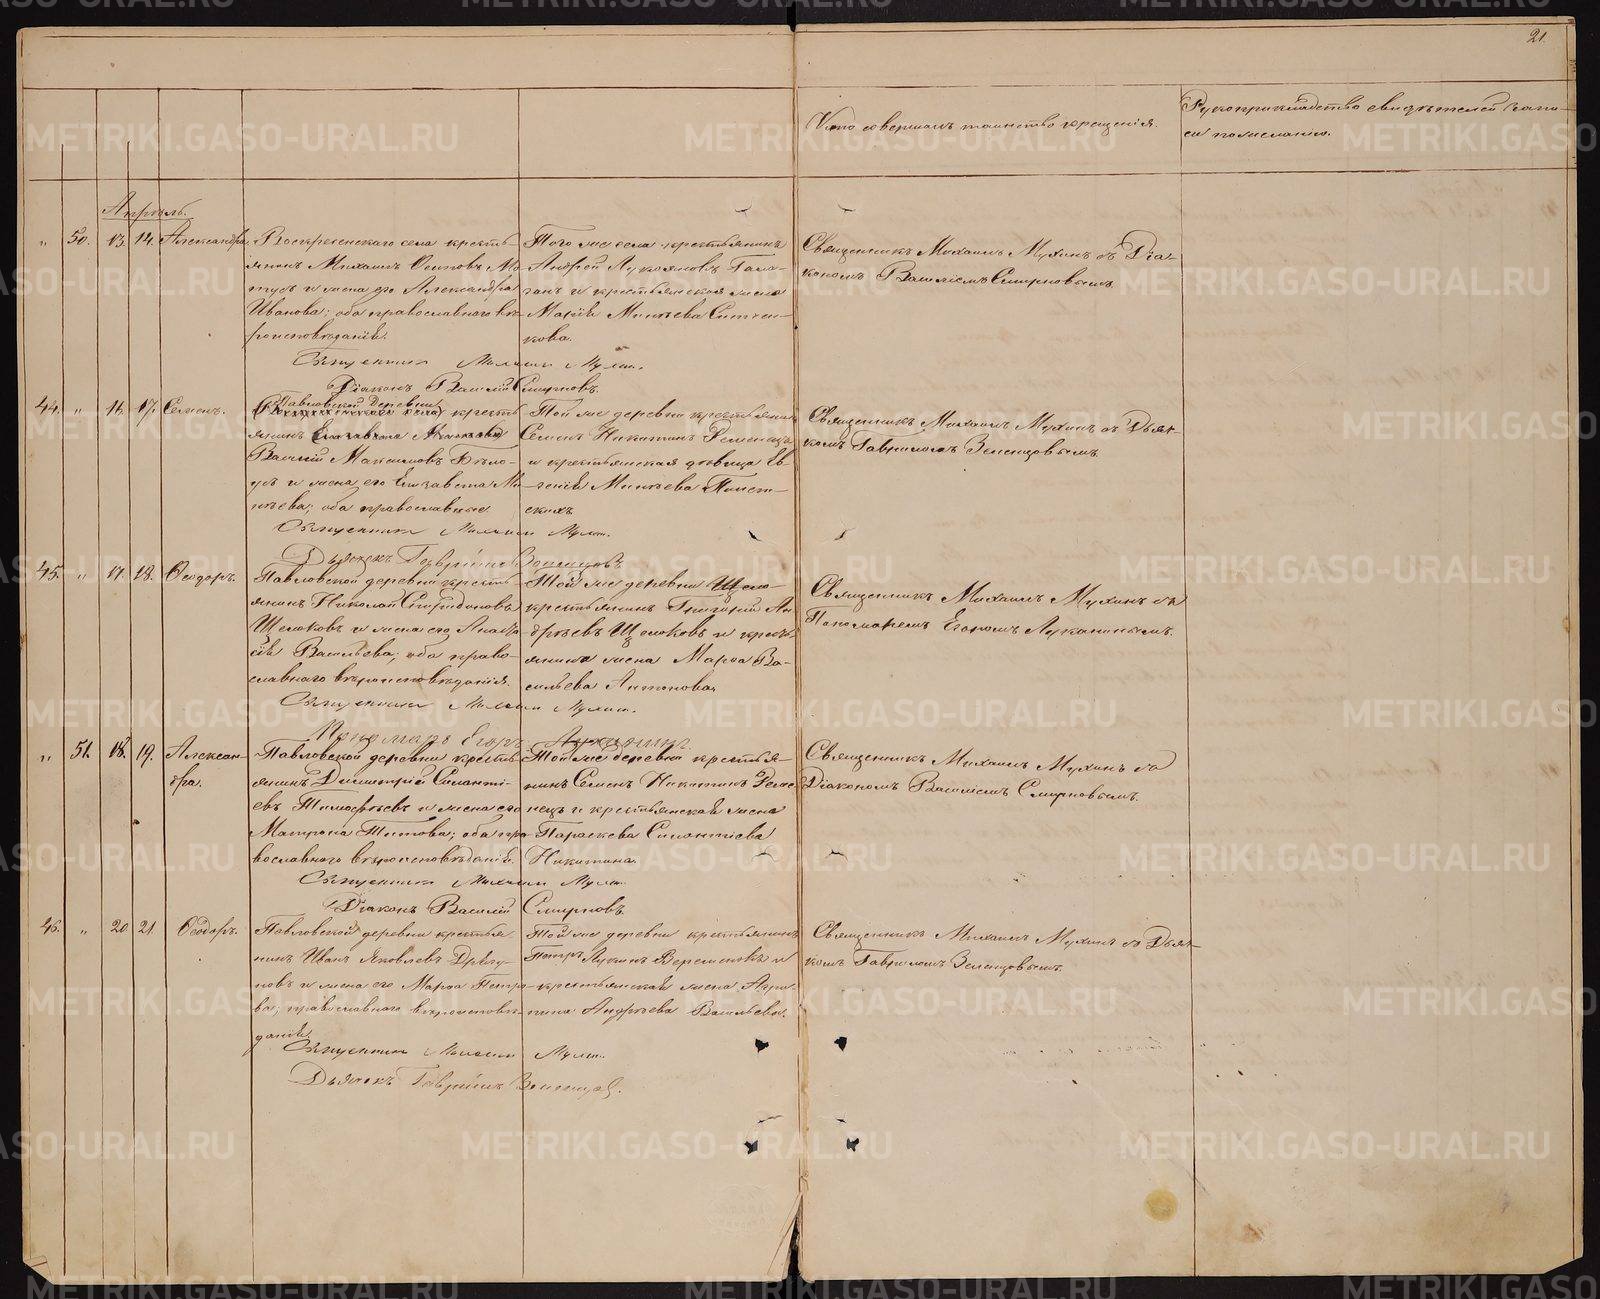 21.
Кто совершалъ таинство крещенія.
Рукоприкладство свидѣтелей записи по желанію.
Апрѣль.
„ 50. 13. 14. Александра
Воскресенскаго села кресть-
янинъ Михаилъ Осиповъ
и жена его Александра
Иванова; оба православнаго вѣ-
роисповѣданія.
Того же села крестьянинъ
Андрей Лукояновъ
и крестьянская жена
Марія
кова.
Священникъ Михаилъ Мухинъ съ Діа-
кономъ Василіемъ Смирновымъ.
Священникъ Михаилъ Мухинъ.
Діаконъ Василій Смирновъ.
44. „ 16. 17. Семенъ.
Павловской деревни
кресть
янинъ
Василій Максимовъ Бѣло-
усъ и жена его Елизавета Ми-
нѣева; оба православные
Той же деревни крестьянинъ
Семенъ Никитинъ Ременецъ
и крестьянская вдовица Ев-
генія Минѣева
Священникъ Михаилъ Мухинъ съ Дьяч-
комъ Гавріиломъ Зеленцовымъ.
Священникъ Михаилъ Мухинъ.
Дьячекъ Гавріилъ Зеленцовъ
45. „ 17. 18. Ѳеодоръ.
Павловской деревни кресть-
янинъ Николай Спиридоновъ
Щелоковъ и жена его Анаста-
сія Васильева; оба право-
славнаго вѣроисповѣданія.
Той же деревни
крестьянинъ Григорій Ан-
дреевъ Щелоковъ и кресть-
янина жена Марѳа Ва-
сильева Антонова
Священникъ Михаилъ Мухинъ съ
Пономаремъ Егоромъ Луканинымъ.
Священникъ Михаилъ Мухинъ.
Пономарь Егоръ Луканинъ.
„ 51. 18. 19. Алексан-
дра.
Павловской деревни кресть-
янинъ Димитрій Силанті-
евъ Тимофѣевъ и жена его
Матрона Титова; оба пра-
вославнаго вѣроисповѣданія.
Той же деревни крестья-
нинъ Семенъ Никитинъ Реме-
нецъ и крестьянская жена
Параскева Силантіева
Никитина.
Священникъ Михаилъ Мухинъ съ
Діакономъ Василіемъ Смирновымъ.
Священникъ Михаилъ Мухинъ.
Діаконъ Василій Смирновъ.
46. „ 20. 21. Ѳеодоръ.
Павловской деревни крестья-
нинъ Иванъ Яковлевъ
и жена его Марѳа Петро-
ва; православнаго вѣроисповѣ-
данія.
Той же деревни крестьянинъ
Петръ Лукинъ и
крестьянская жена Агри-
пина Андреева Васильева.
Священникъ Михаилъ Мухинъ съ Дьяч-
комъ Гавріиломъ Зеленцовымъ.
Священникъ Михаилъ Мухинъ.
Дьячекъ Гавріилъ Зеленцовъ.
METRIKI.GASO-URAL.RU